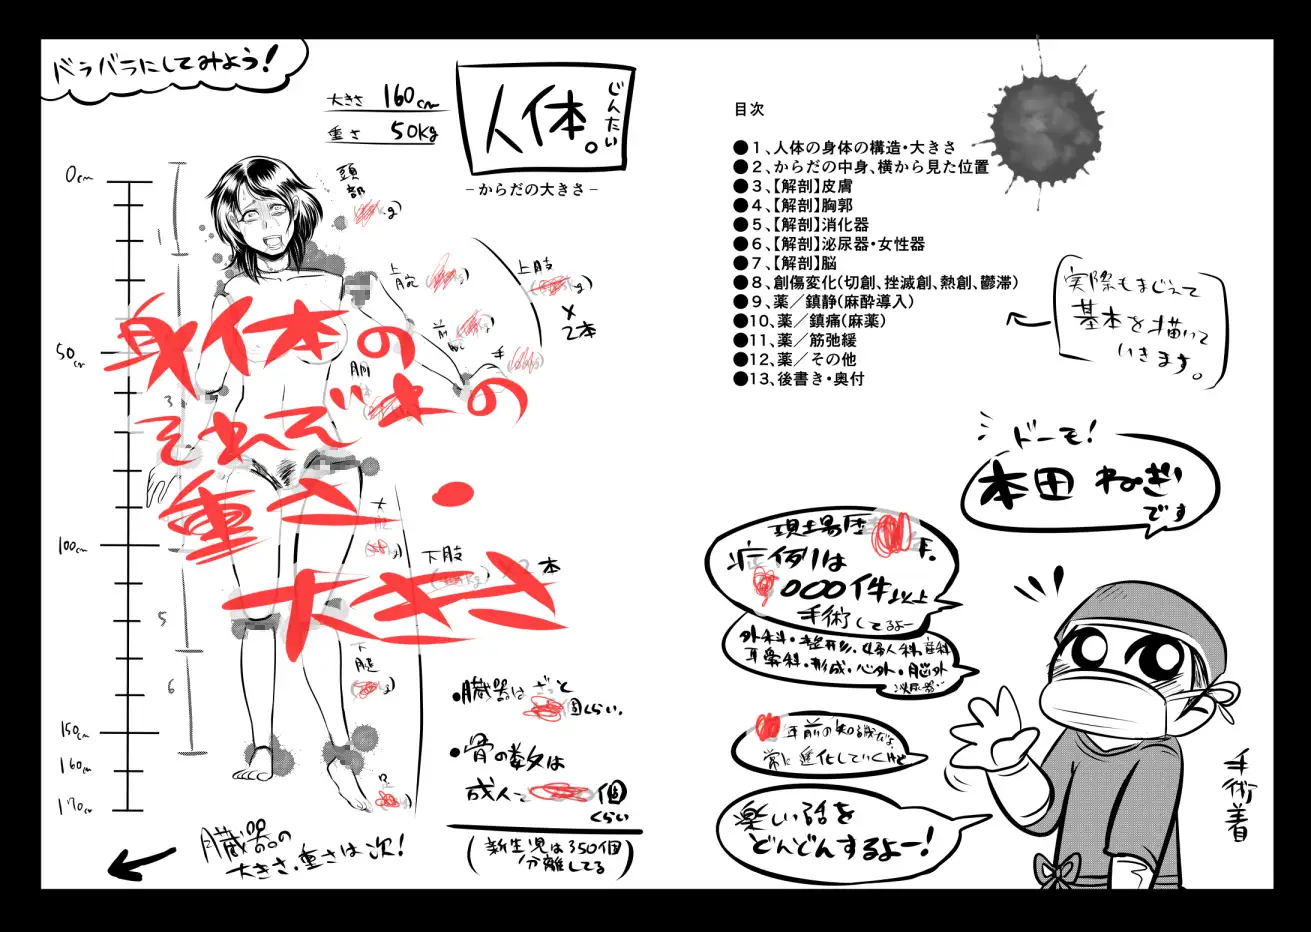 目次
●1、人体の身体の構造・大きさ
●2、からだの中身、横から見た位置
●3、【解剖】皮膚
●4、【解剖】胸郭
●5、【解剖】消化器
●6、【解剖】泌尿器・女性器
●7、【解剖】脳
●8、創傷変化(切創、挫滅創、熱創、鬱滞)
●9、薬／鎮静(麻酔導入)
●10、薬／鎮痛(麻薬)
●11、薬／筋弛緩
●12、薬／その他
●13、後書き・奥付
実際もまじえて
基本を描いて
いきます。
ドーモ!
本田ねぎ
です
現場歴
年.
症例は
000件以上
手術してるよー
外科・整形・婦人科・産科
耳鼻科・形成・心外・脳外
泌尿器…
年前の知識だよ
常に進化していくけど
楽しい話を
どんどんするよー!
手術着
バラバラにしてみよう!
大きさ 160cm
重さ 50Kg
人体。
じんたい
－からだの大きさ－
0cm
50cm
100cm
150cm
160cm
170cm
1
3
5
6
頭部
上腕
上肢
×2本
手
下肢
本
下腿
足
身体の
それぞれの
重さ・
大きさ
・臓器はざっと
個くらい.
・骨の数は
成人で
個
くらい
(新生児は350個
分離してる)
臓器の
大きさ・重さは次!